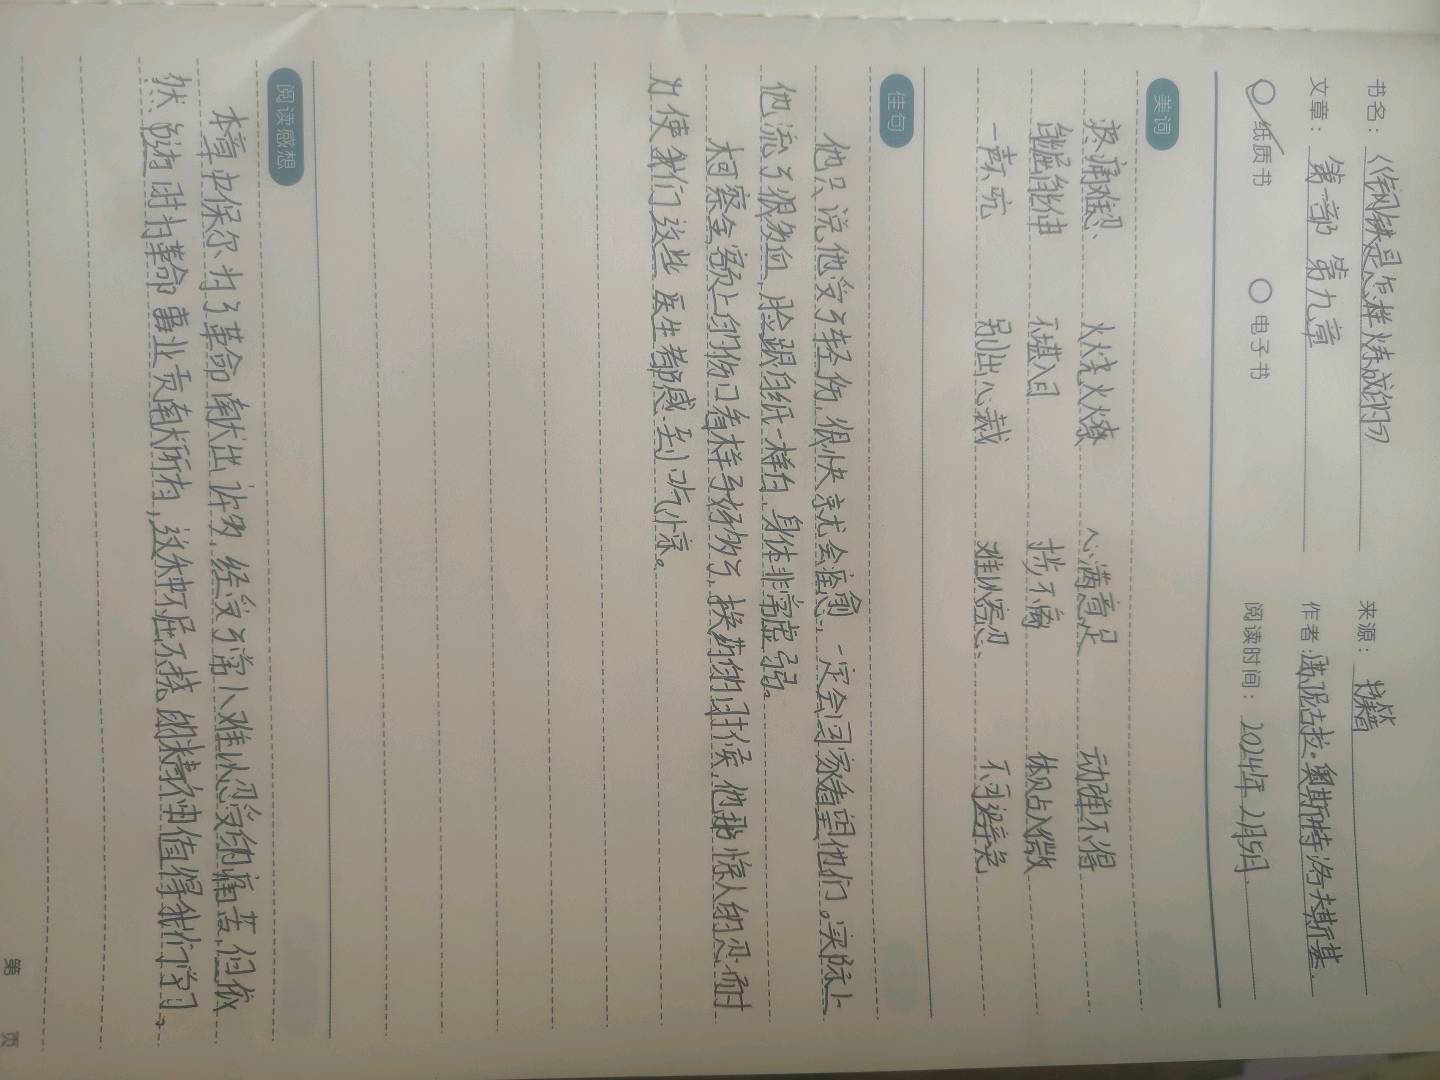 书名：《钢铁是怎样炼成的》 来源：书籍
文章：第一部 第九章 作者：尼古拉·奥斯特洛夫斯基
纸质书 电子书 阅读时间：2024年2月5日
美词
疼痛难忍 火烧火燎 心满意足 动弹不得
能屈能伸 不堪入目 寸步不离 体贴入微
一声不吭 别出心裁 难以容忍 不可避免
佳句
他只说他受了轻伤，很快就会痊愈，一定会回家看望他们。实际上
他流了很多血，脸跟白纸一样白，身体非常虚弱。
柯察金额上的伤口看样子好多了，换药的时候，他那惊人的忍耐
力使我们这些医生都感到吃惊。
阅读感想
本章中保尔为了革命献出许多，经受了常人难以忍受的痛苦，但依
然为革命事业贡献所有，这种不屈不挠的精神值得我们学习。
第 页